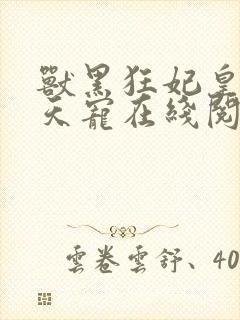 獸黑狂妃皇
天寵在綫閱
雲卷雲舒、40